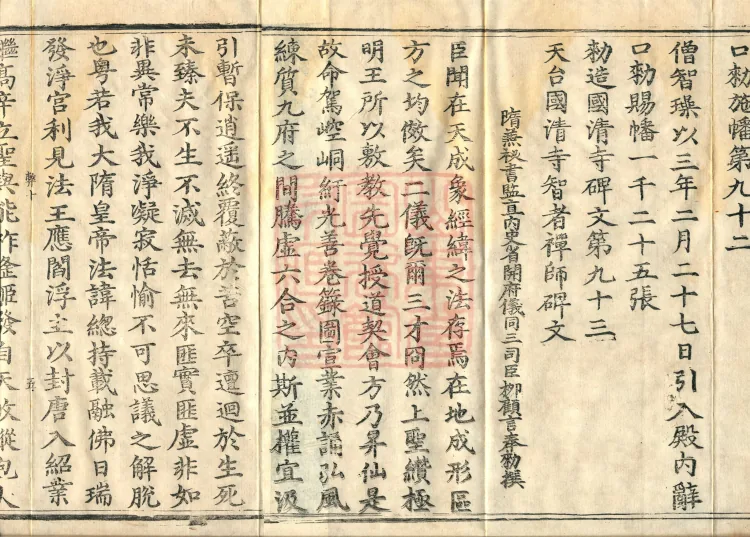 口勅施幡第九十二
僧智璪以三年二月二十七日引入殿內辭
口勅賜幡一千二十五張
勅造國清寺碑文第九十三
天台國清寺智者禪師碑文
隋燕祕書監直內史省開府儀同三司臣栁顧言奉勅撰
臣聞在天成象經緯之法存焉在地成形區
方之均儌矣二儀旣爾三才冏然上聖纘極
明王所以敷教先覺授道契會方乃昇仙是
故命駕崆峒紆光善卷籙圖宣業赤誦弘風
練質九府之間騰虛六合之內斯並權宜汲
引暫保逍遥終覆蔽於苦空卒邅迴於生死
未臻夫不生不滅無去無來匪實匪虛非如
非異常樂我淨凝寂恬愉不可思議之解脫
也粤若我大隋皇帝法諱總持載融佛日瑞
發淨宮利見法王應閻浮主以封唐入紹業
繼高辛立聖與能祚逢姬發自天攸縱包